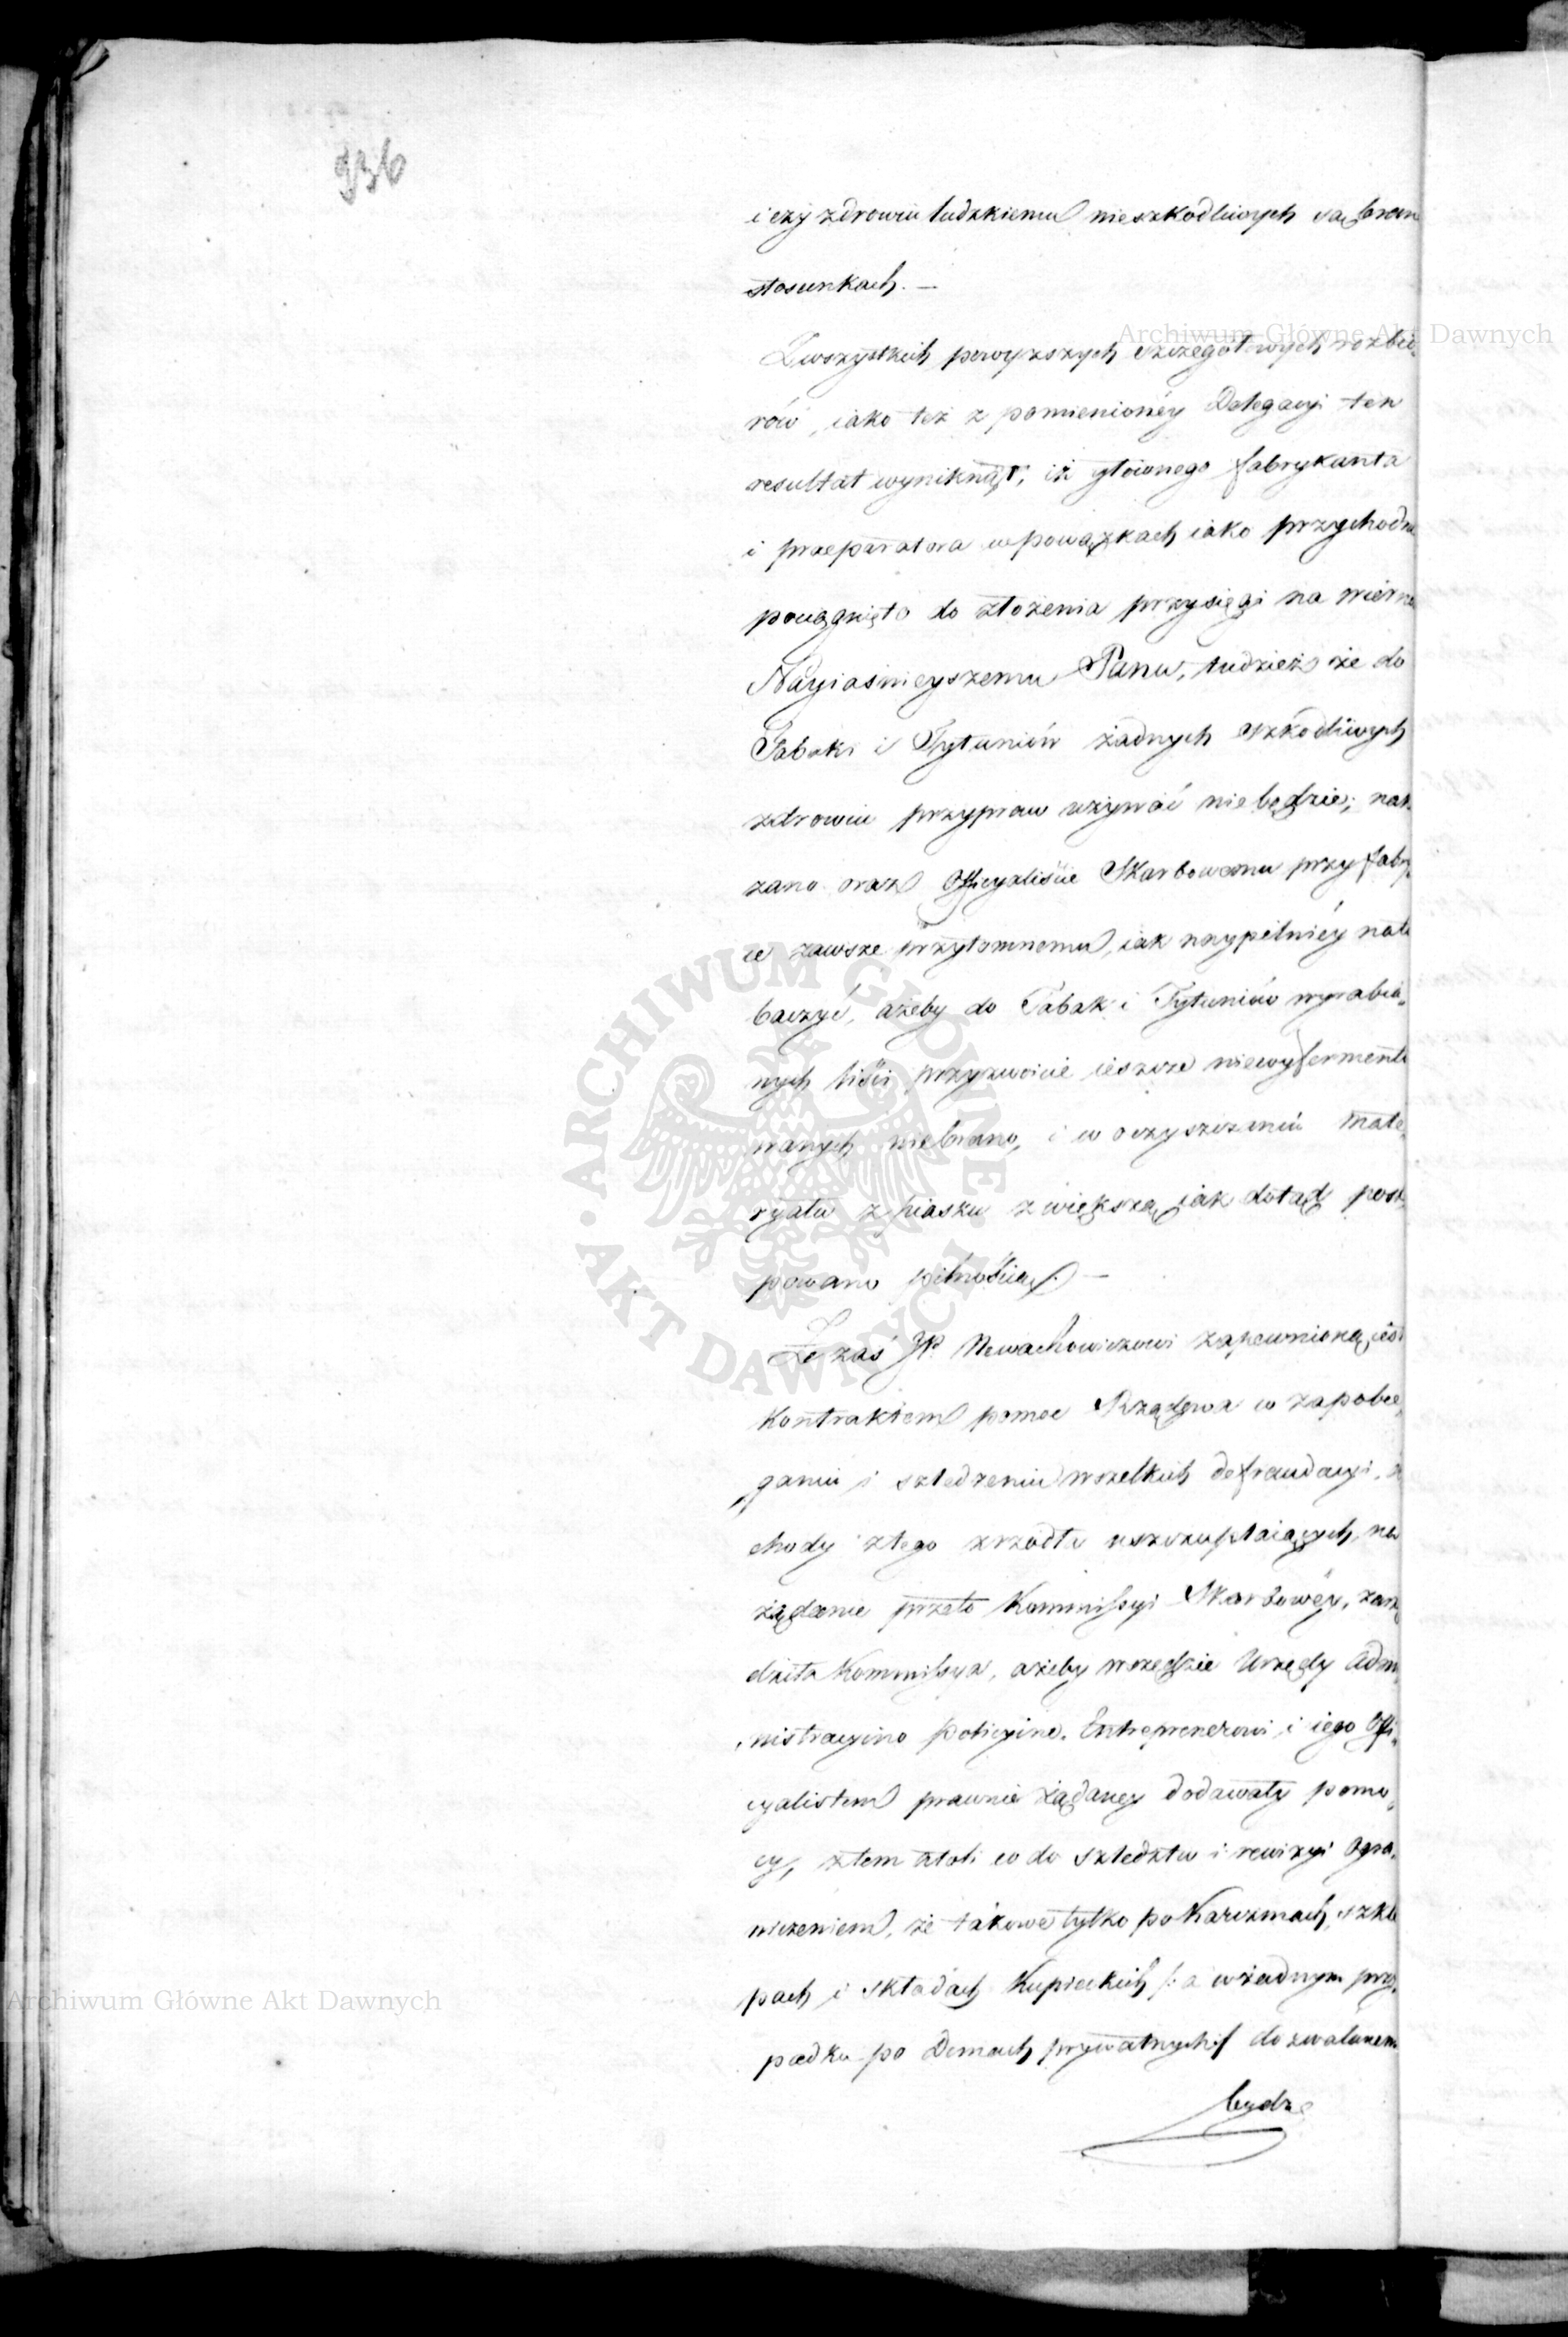 936
i czy zdrowiu ludzkiemu nieszkodliwych są brane
stosunkach. —
Z wszystkich powyższych szczegółowych rozbio,
rów, iako też z pomienionéy Delegacyi ten
resultat wyniknął, iż głównego fabrykanta
i praeparatora w powązkach iako przychodnia
pociągnięto do złożenia przysięgi na wierno
Nayiaśnieyszemu Panu, tudzież że do
Tabaki i Tytuniów żadnych szkodliwych
zdrowiu przypraw używać niebędzie; naka
zano oraz Officyaliście Skarbowemu przy fabry
ce zawsze przytomnemu, iak naypilniéy nato
baczyć, ażeby do Tabak i Tytuniów wyrabia,
nych liści przyzwoicie ieszcze niewyfermento
wanych niebrano, i w oczyszczaniu mate,
ryału z piasku z większą iak dotąd postę
powano pilnością. —
Że zaś JP. Newachowiczowi zapewnioną iest
Kontraktem pomoc Rządowa w zapobie,
ganiu i szledzeniu wszelkich defraudacyi, do
chody ztego zrzódła uszczuplaiących, na
żądanie przeto Kommissyi Skarbowéy, zarzą
dziła Kommissya, ażeby wszędzie Urzędy Admi,
nistracyino policyine. Entreprenerowi i iego Offi,
cyalistom prawnie żądaney dodawały pomo,
cy, ztem atoli co do szledztw i rewizyi Ogra,
niczeniem, że takowe tylko po Karczmach, szkle
pach i składach Kupieckich /: a w żadnym przy,
padku po Domach prywatnych :/ dozwalanem
będzie
Archiwum Główne Akt Dawnych
ARCHIWUM GŁÓWNE · AKT DAWNYCH ·
Archiwum Główne Akt Dawnych